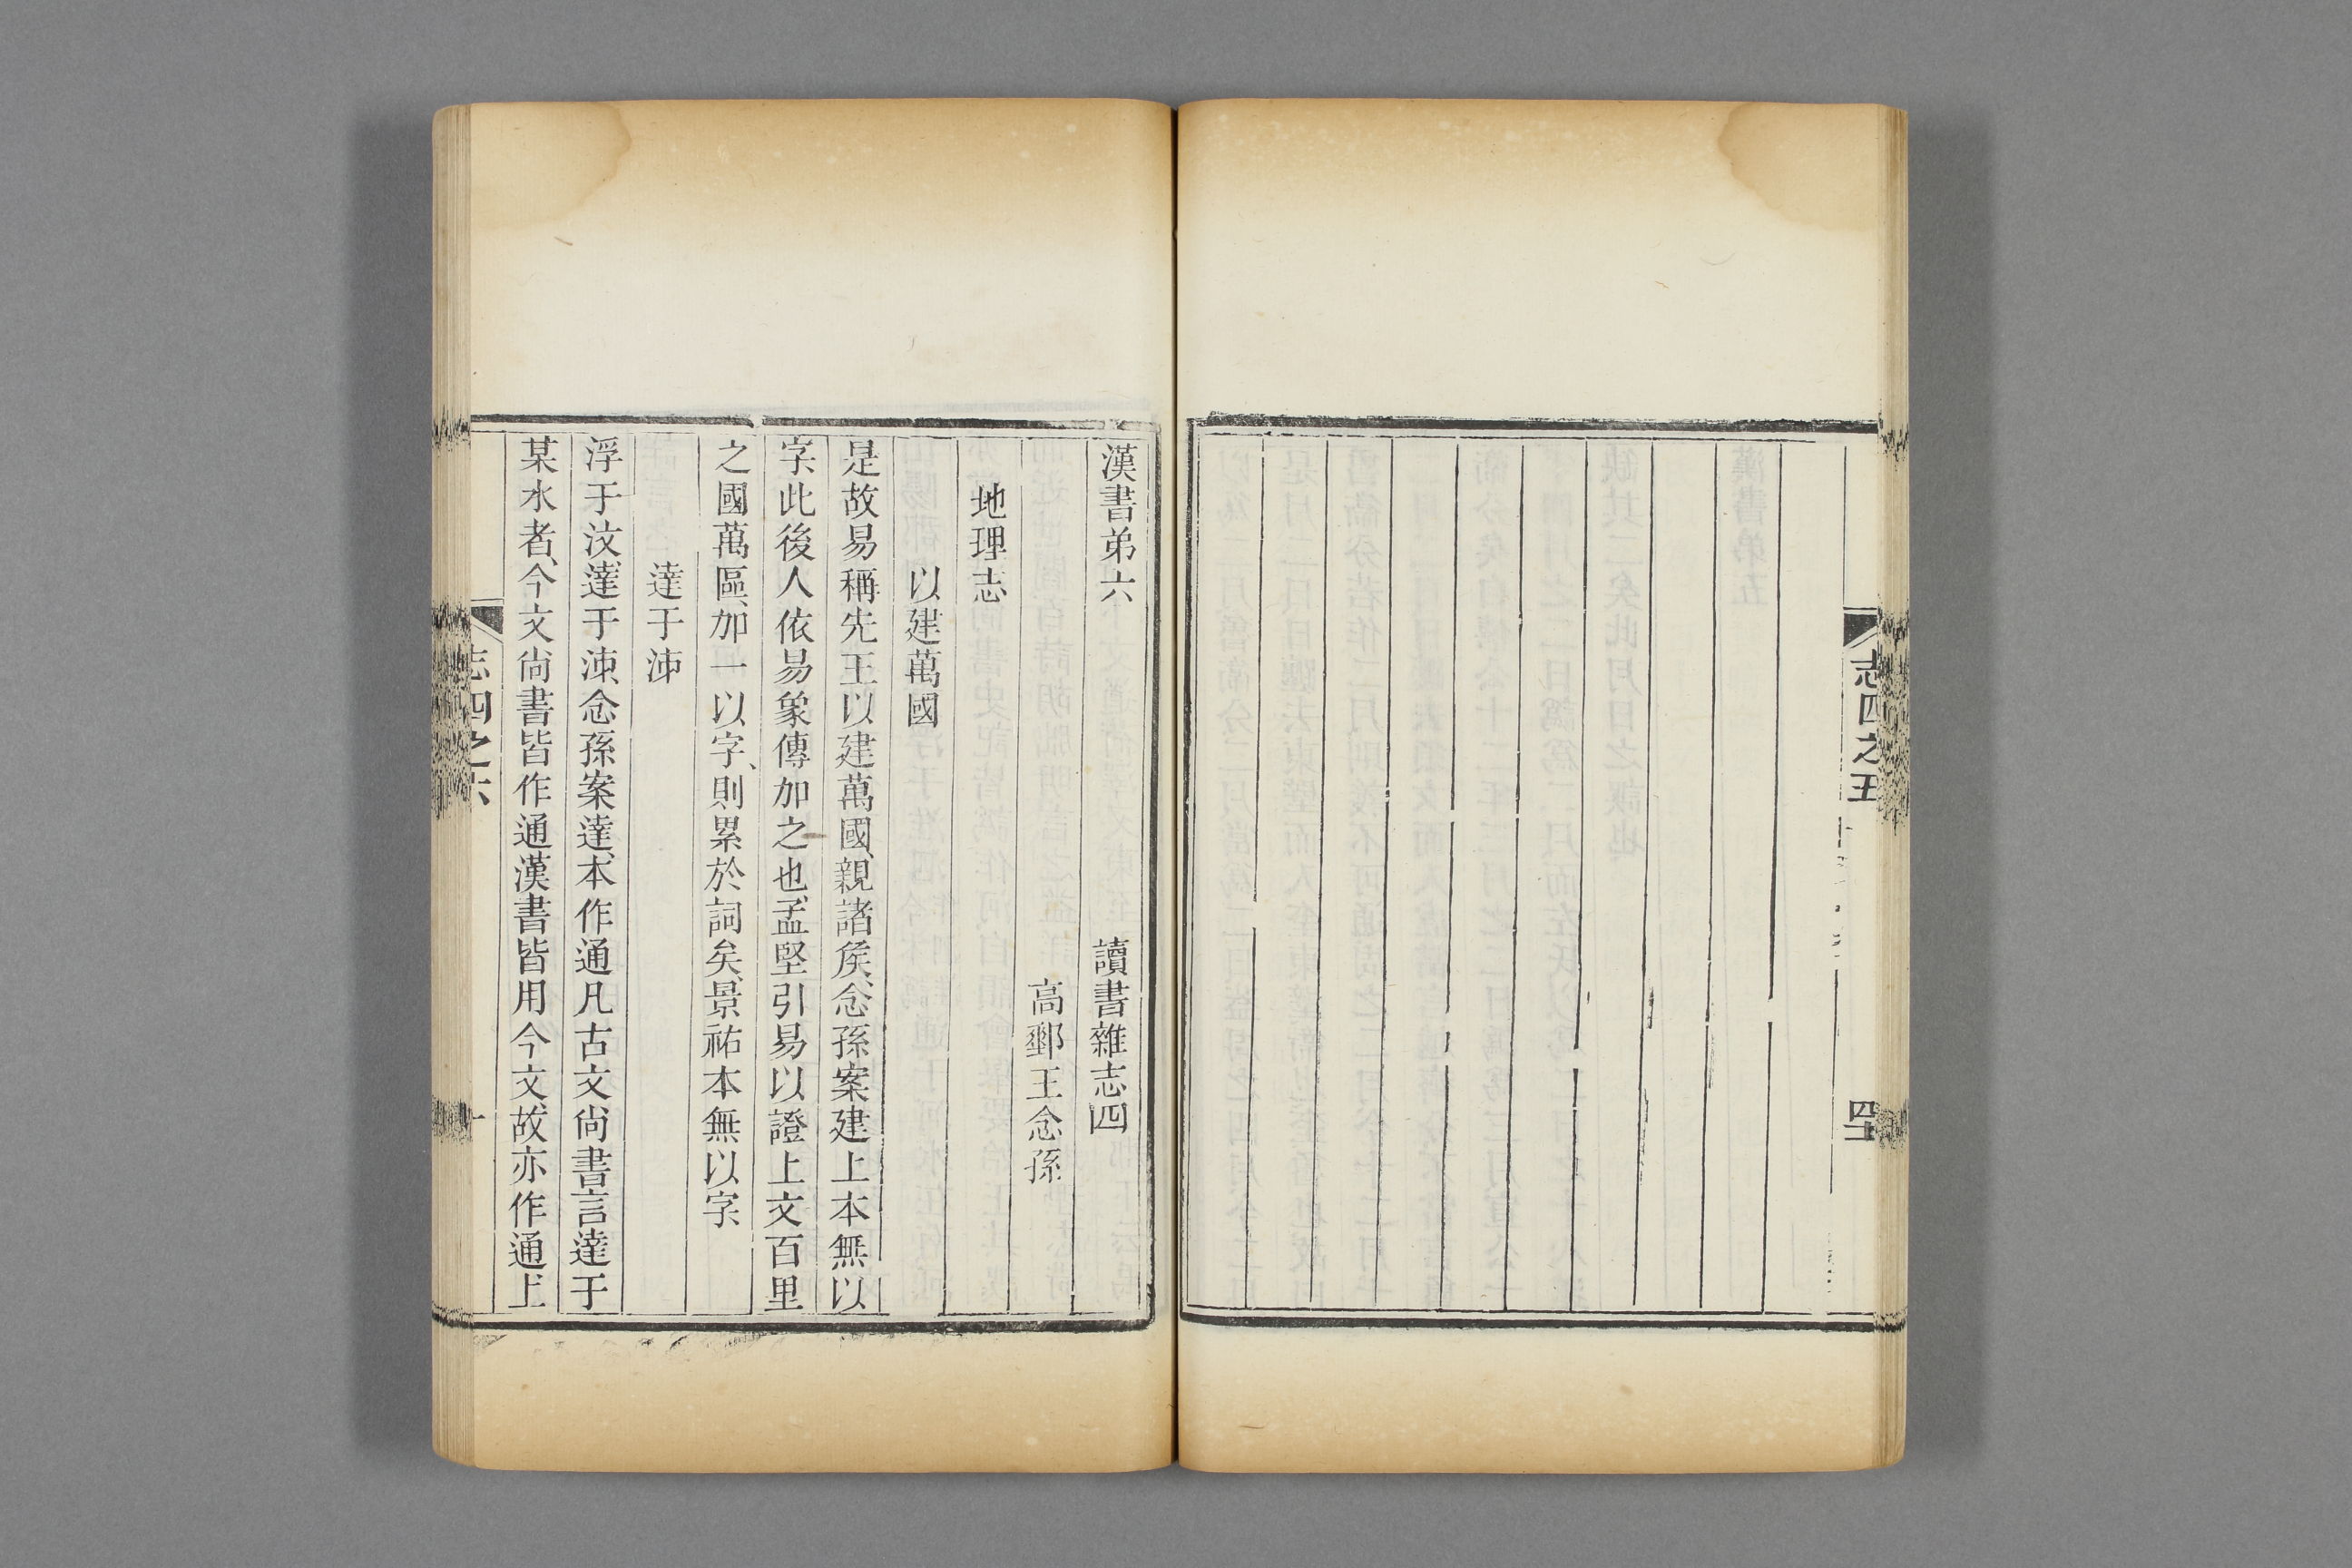 志四之五
四十
漢書弟六　讀書雜志四
高郵王念孫
地理志
以建萬國
是故易稱先王以建萬國、親諸矦、念孫案建上本無以
字、此後人依易象傳加之也、孟堅引易以證上文百里
之國萬區、加一以字、則累於詞矣、景祐本無以字、
達于泲
浮于汶、達于泲、念孫案達、本作通、凡古文尙書言達于
某水者、今文尙書皆作通、漢書皆用今文、故亦作通、上
志四之六
一